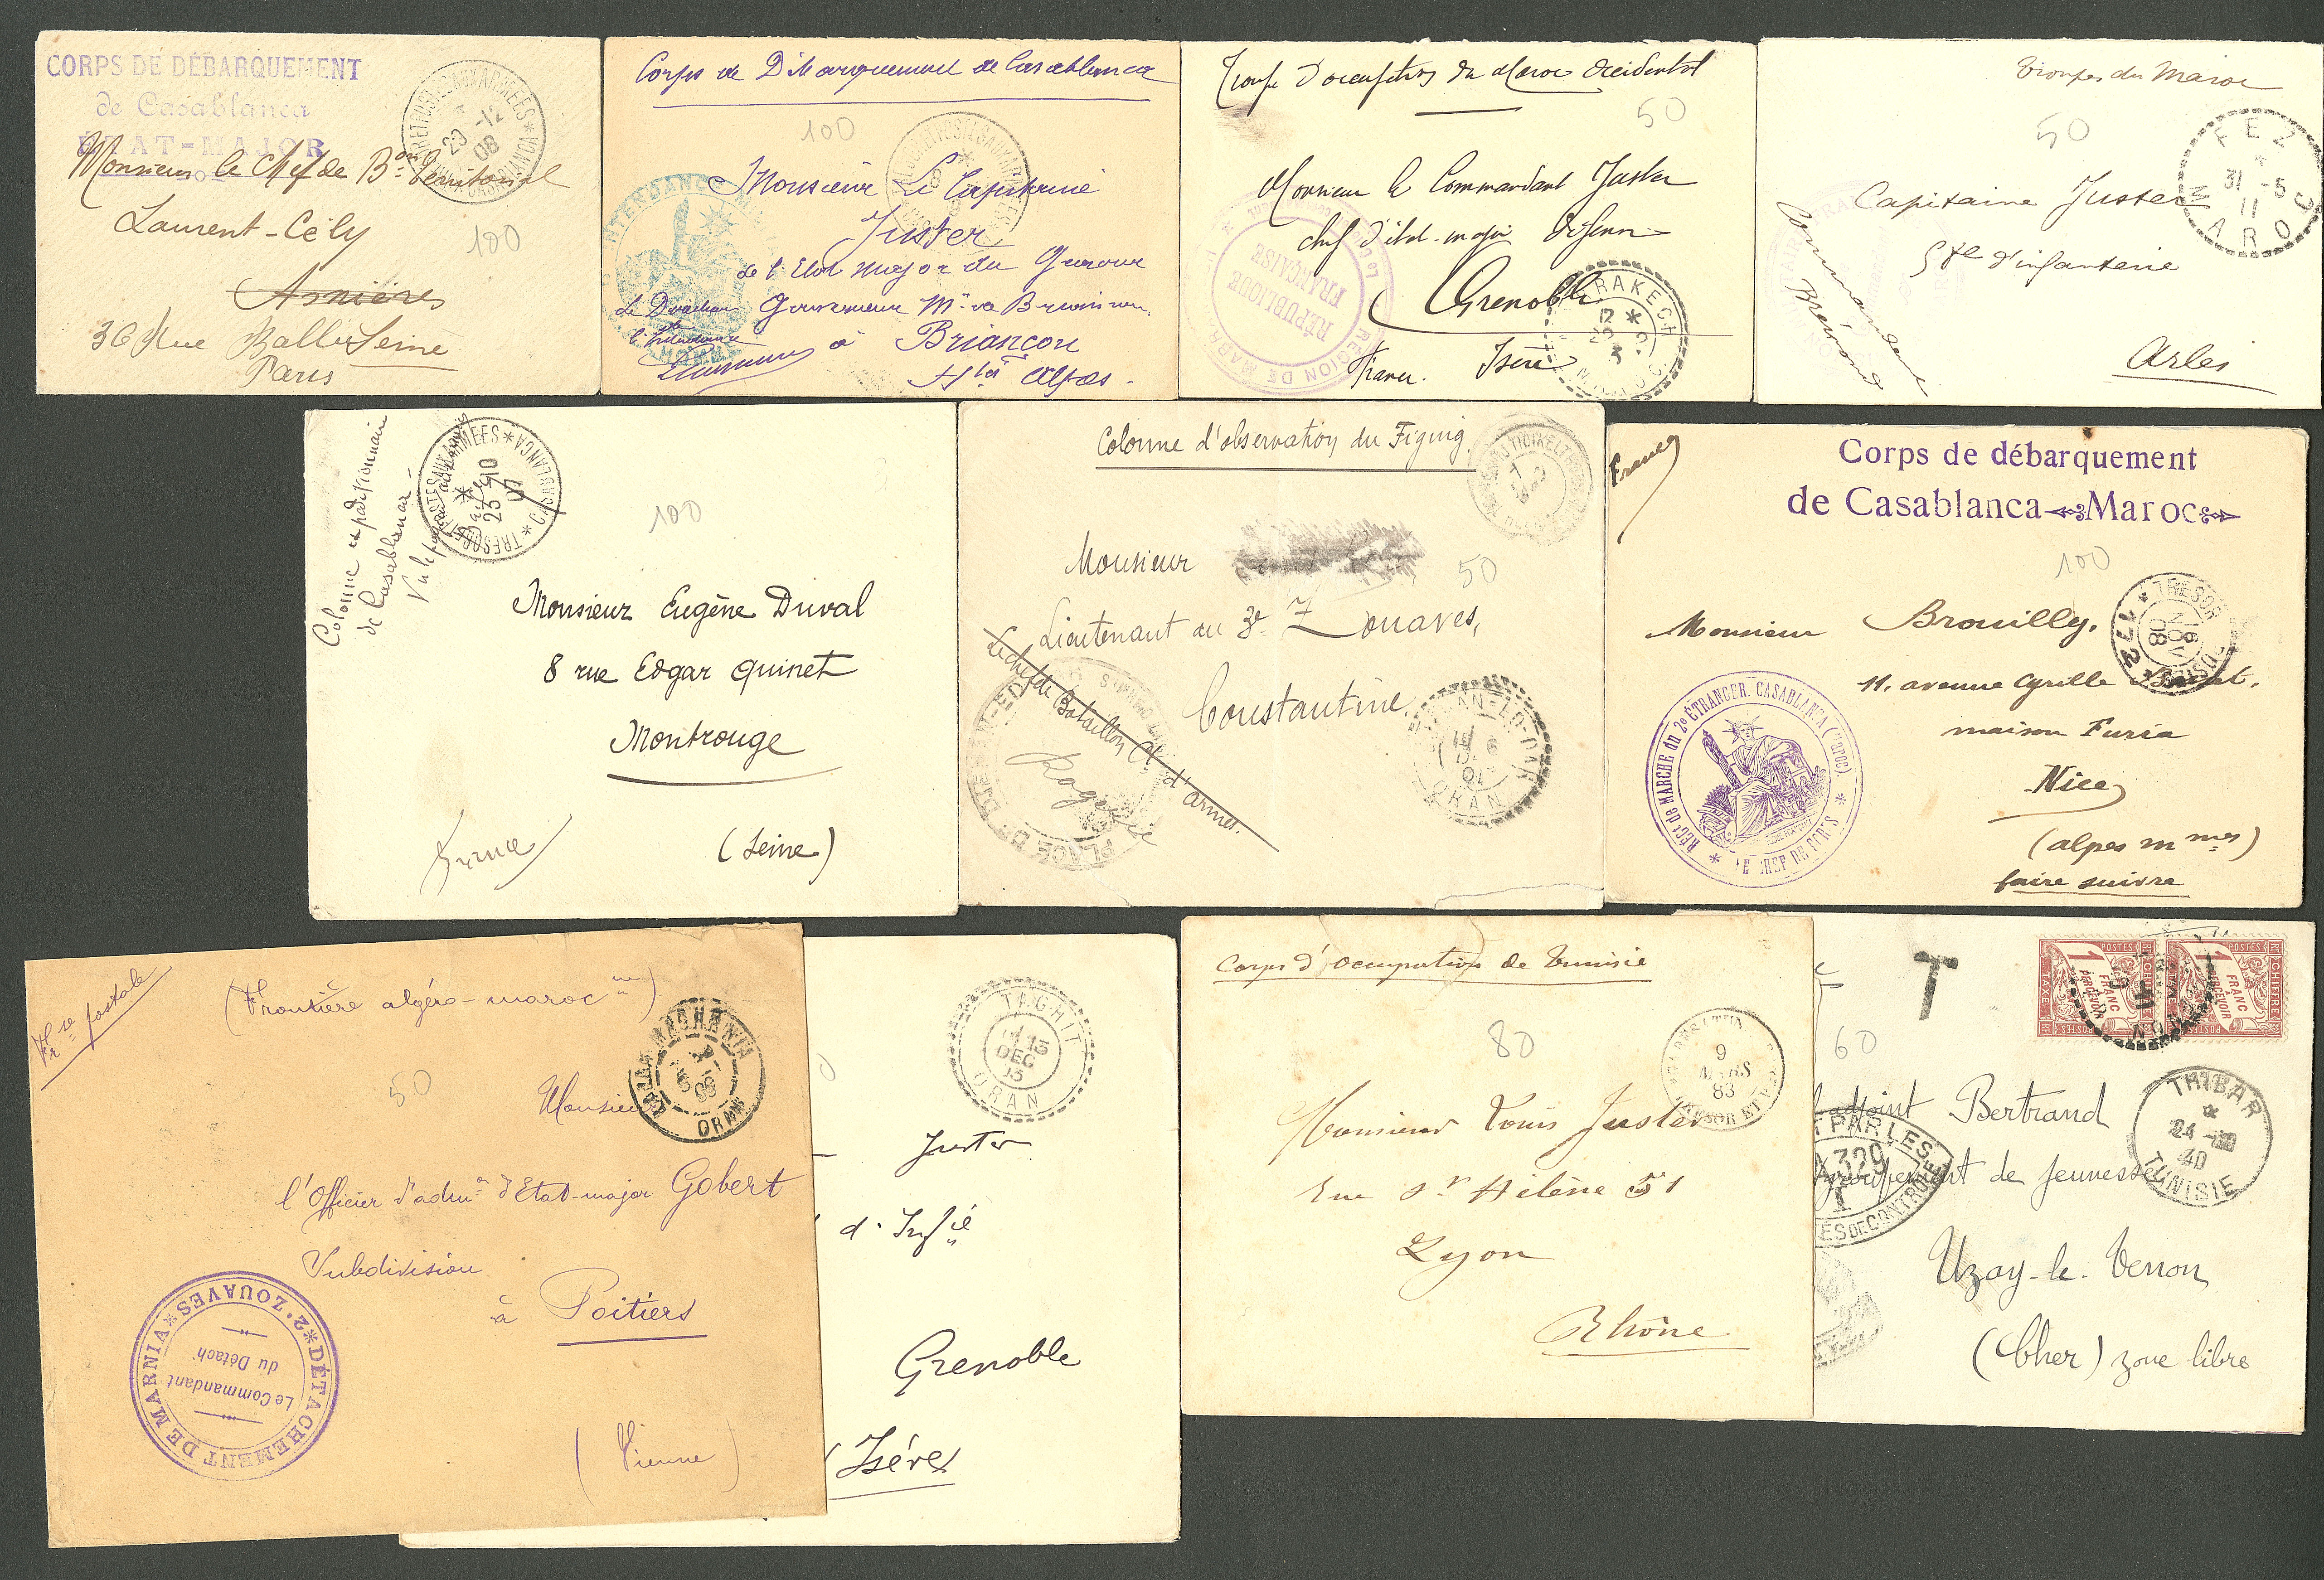 CORPS DE DÉBARQUEMENT
de Casablanca
ETAT-MAJOR
TRESOR ET POSTES AUX ARMEES * CASABLANCA *
20 -12
08
Monsieur le Chef de B.on Territorial
Laurent-Cély
Asnières
36 Rue Ballu Seine
Paris
100
Corps de Débarquement de Casablanca
100
Monsieur Le Capitaine
Juster
de l'Etat major du
Gouverneur
à Briançon
Htes Alpes.
INTENDANCE
Troupe d'occupation du Maroc Occidental
50
Monsieur le Commandant Juster
chef d'état-major
Grenoble
France. Isère
RÉPUBLIQUE
FRANÇAISE
MARRAKECH
Troupes du Maroc
50
FEZ
31 -5
11
MAROC
Capitaine Juster
d'infanterie
Arles
Commandant
Brémond
Colonne expéditionnaire
de Casablanca
TRESOR ET POSTES AUX ARMEES * CASABLANCA *
23 -10
07
100
Monsieur Eugène Duval
8 rue Edgar Quinet
Montrouge
(Seine)
France
Colonne d'observation du Figuig.
Monsieur
50
Lieutenant au 3e Zouaves,
Constantine.
Le chef de Bataillon Ct d'armes.
ORAN
France
Corps de débarquement
de Casablanca Maroc
100
TRESOR
16
NOV
08
Monsieur Brouilly.
11. avenue Cyrille
maison Furia
Nice
(alpes mmes)
faire suivre
RÉGt de MARCHE du 2e ÉTRANGER. CASABLANCA (Maroc).
LE CHEF DE CORPS
Frse postale
(Frontière algéro-marocne)
50
LALLA MAGHRNIA
ORAN
Monsieur
l'Officier d'admon d'Etat-major Gobert
Subdivision
à Poitiers
(Vienne)
2e ZOUAVES * DÉTACHEMENT DE MARNIA *
Le Commandant
du Détacht
TAGHIT
13
DEC
13
ORAN
Juster
d'Infie
Grenoble
(Isère)
Corps d'Occupation de Tunisie
80
9
MARS
83
TRESOR ET POSTES
Monsieur Louis Juster
Rue St Hélène 51
Lyon
Rhône
T
POSTES
CHIFFRE
1 FRANC
A PERCEVOIR
TAXE
POSTES
CHIFFRE
1 FRANC
A PERCEVOIR
TAXE
60
THIBAR
24
40
TUNISIE
adjoint Bertrand
Groupement de jeunesse
Uzay-le-Venon
(Cher) zone libre